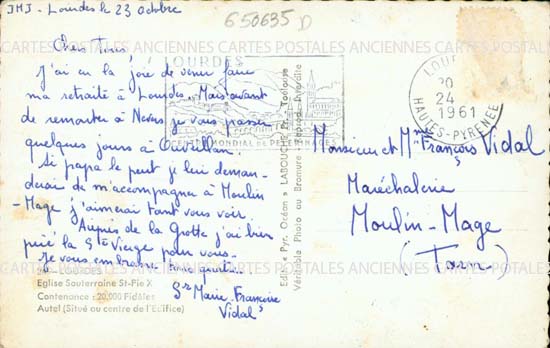 JMJ - Lourdes le 23 Octobre
650635 D
Chers Tous,
J'ai eu la joie de venir faire
ma retraite à Lourdes. Mais avant
de remonter à Nevers je vais passer
quelques jours à
Si papa le peut je lui deman-
derai de m'accompagner à Moulin
-Mage j'aimerai tant vous voir.
Auprès de la Grotte j'ai bien
prié la Ste Vierge pour vous.
Je vous embrasse tous
Sr Marie-Françoise
Vidal
LOURDES
Eglise Souterraine St-Pie X
Contenance : 20.000 Fidèles
Autel (Situé au centre de l'Edifice)
LOURDES
MONDIAL DE PELERINAGES
Edit. « Pyr. Océan » LABOUCHE Fr. Toulouse
Véritable Photo au Bromure - Reprod. Interdite
LOURDES
20
24
1961
HAUTES-PYRENEES
Monsieur et Mme François Vidal
Maréchalerie
Moulin-Mage
(Tarn)
CARTES POSTALES ANCIENNES CARTES POSTALES ANCIENNES CARTES POSTALES ANCIENNES